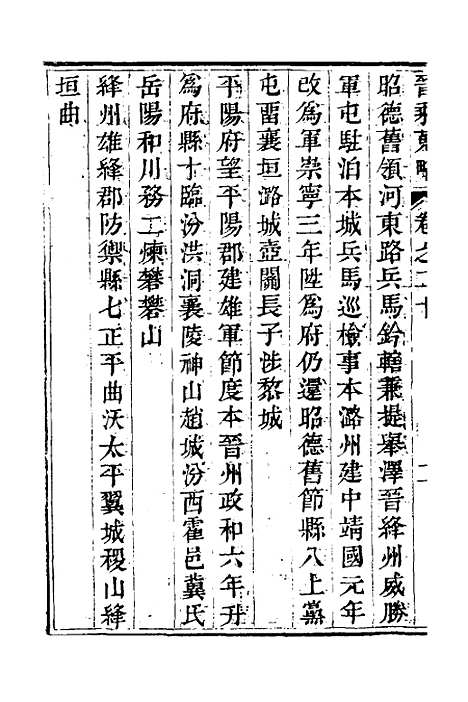 晉乘蒐略 卷之二十 二
昭德舊領河東路兵馬鈐轄兼提舉澤晉絳州威勝
軍屯駐泊本城兵馬巡檢事本潞州建中靖國元年
改為軍崇寧三年陞為府仍還昭德舊節縣八上黨
屯留襄垣潞城壺關長子涉黎城
平陽府望平陽郡建雄軍節度本晉州政和六年升
為府縣十臨汾洪洞襄陵神山趙城汾西霍邑冀氏
岳陽和川務二煉礬礬山
絳州雄絳郡防禦縣七正平曲沃太平翼城稷山絳
垣曲